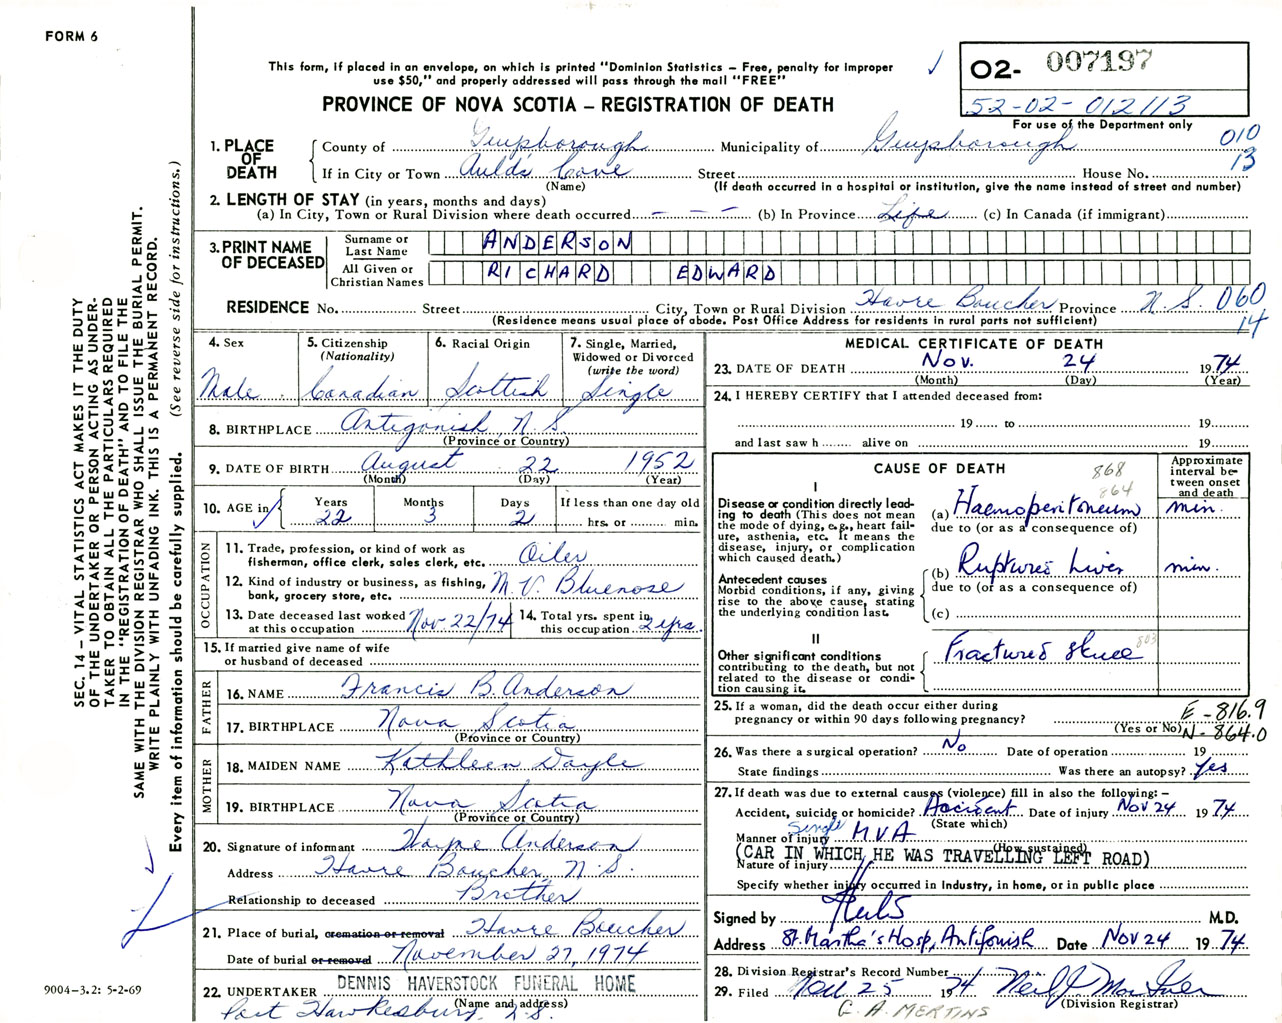 FORM 6
This form, if placed in an envelope, on which is printed "Dominion Statistics – Free, penalty for improper
use $50," and properly addressed will pass through the mail "FREE"
PROVINCE OF NOVA SCOTIA – REGISTRATION OF DEATH
02- 007197
52-02-012113
For use of the Department only
010
13
1. PLACE OF DEATH
County of Guysborough Municipality of Guysborough
If in City or Town Auld's Cove Street House No.
(Name) (If death occurred in a hospital or institution, give the name instead of street and number)
2. LENGTH OF STAY (in years, months and days)
(a) In City, Town or Rural Division where death occurred – – – (b) In Province Life (c) In Canada (if immigrant)
3. PRINT NAME OF DECEASED
Surname or Last Name ANDERSON
All Given or Christian Names RICHARD EDWARD
RESIDENCE No. Street City, Town or Rural Division Havre Boucher Province N.S. 060
(Residence means usual place of abode. Post Office Address for residents in rural parts not sufficient) 14
4. Sex
Male
5. Citizenship
(Nationality)
Canadian
6. Racial Origin
Scottish
7. Single, Married,
Widowed or Divorced
(write the word)
Single
8. BIRTHPLACE Antigonish, N.S.
(Province or Country)
9. DATE OF BIRTH August 22 1952
(Month) (Day) (Year)
10. AGE in
Years Months Days If less than one day old
22 3 2 hrs. or min.
OCCUPATION
11. Trade, profession, or kind of work as
fisherman, office clerk, sales clerk, etc. Oiler
12. Kind of industry or business, as fishing,
bank, grocery store, etc. M.V. Bluenose
13. Date deceased last worked
at this occupation Nov 22/74
14. Total yrs. spent in
this occupation 2 yrs.
15. If married give name of wife
or husband of deceased
FATHER
16. NAME Francis B. Anderson
17. BIRTHPLACE Nova Scotia
(Province or Country)
MOTHER
18. MAIDEN NAME Kathleen Doyle
19. BIRTHPLACE Nova Scotia
(Province or Country)
20. Signature of informant Wayne Anderson
Address Havre Boucher, N.S.
Relationship to deceased Brother
21. Place of burial, cremation or removal Havre Boucher
Date of burial or removal November 27, 1974
22. UNDERTAKER DENNIS HAVERSTOCK FUNERAL HOME
(Name and address)
Port Hawkesbury, N.S.
MEDICAL CERTIFICATE OF DEATH
23. DATE OF DEATH Nov. 24 1974
(Month) (Day) (Year)
24. I HEREBY CERTIFY that I attended deceased from:
19 to 19
and last saw h alive on 19
CAUSE OF DEATH
868
864
Approximate
interval be-
tween onset
and death
I
Disease or condition directly lead-
ing to death (This does not mean
the mode of dying, e.g., heart fail-
ure, asthenia, etc. It means the
disease, injury, or complication
which caused death.)
(a) Haemoperitoneum min.
due to (or as a consequence of)
Antecedent causes
Morbid conditions, if any, giving
rise to the above cause, stating
the underlying condition last.
(b) Ruptured Liver min.
due to (or as a consequence of)
(c)
II
Other significant conditions
contributing to the death, but not
related to the disease or condi-
tion causing it.
Fractured Skull 803
25. If a woman, did the death occur either during
pregnancy or within 90 days following pregnancy?
(Yes or No)
E-816.9
N-864.0
26. Was there a surgical operation? No Date of operation 19
State findings Was there an autopsy? Yes
27. If death was due to external causes (violence) fill in also the following: –
Accident, suicide or homicide? Accident Date of injury Nov 24 1974
(State which)
Manner of injury Single MVA
(How sustained)
(CAR IN WHICH HE WAS TRAVELLING LEFT ROAD)
Nature of injury
Specify whether injury occurred in Industry, in home, or in public place
Signed by M.D.
Address St. Martha's Hosp, Antigonish Date Nov 24 1974
28. Division Registrar's Record Number
29. Filed Nov 25 1974
(Division Registrar)
G. A. MERTINS
SEC. 14 – VITAL STATISTICS ACT MAKES IT THE DUTY
OF THE UNDERTAKER OR PERSON ACTING AS UNDER-
TAKER TO OBTAIN ALL THE PARTICULARS REQUIRED
IN THE "REGISTRATION OF DEATH" AND TO FILE THE
SAME WITH THE DIVISION REGISTRAR WHO SHALL ISSUE THE BURIAL PERMIT.
WRITE PLAINLY WITH UNFADING INK. THIS IS A PERMANENT RECORD.
Every item of information should be carefully supplied. (See reverse side for instructions.)
9004-3.2: 5-2-69